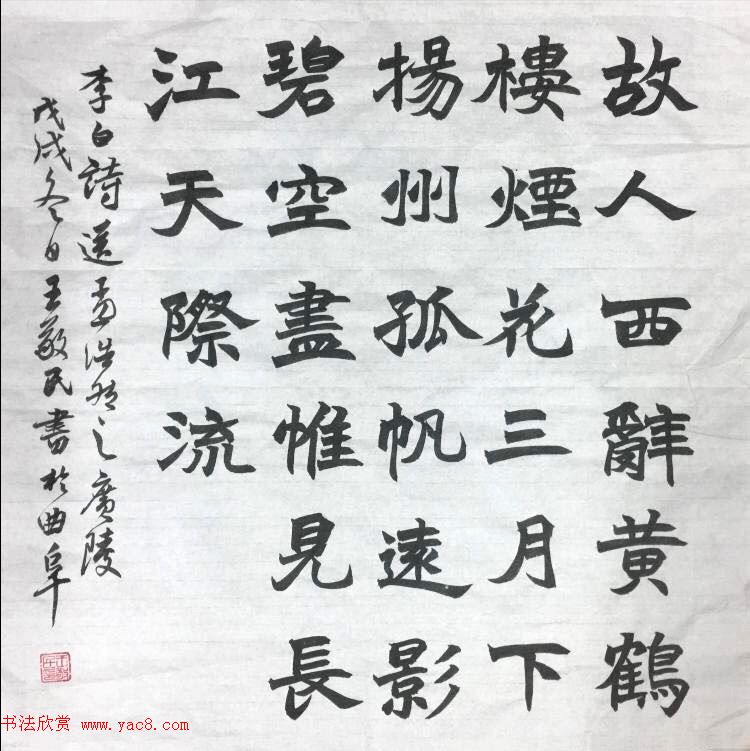 故人西辭黄鶴
樓煙花三月下
揚州孤帆遠影
碧空盡惟見長
江天際流
李白詩送孟浩然之廣陵
戊戌冬日王敬民書於曲阜
书法欣赏 www.yac8.com